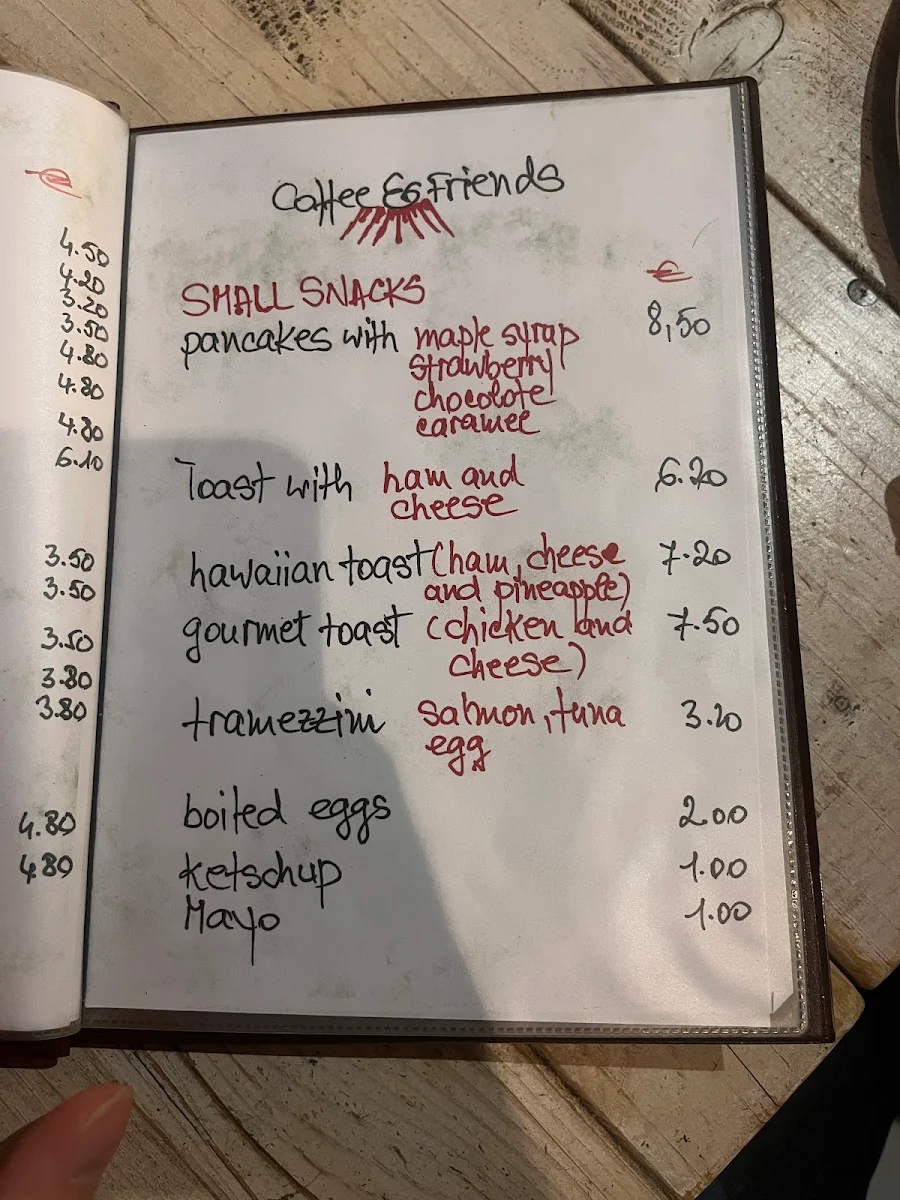 €
4.50
4.20
3.20
3.50
4.80
4.80
4.80
6.10
3.50
3.50
3.50
3.80
3.80
4.80
4.80
Coffee & Friends
€
SMALL SNACKS
pancakes with maple syrap 8,50
strawberry
chocolate
caramel
Toast with ham and 6.20
cheese
hawaiian toast (ham, cheese 7.20
and pineapple)
gourmet toast (chicken and 7.50
cheese)
tramezzini salmon, tuna 3.20
egg
boiled eggs 2.00
ketschup 1.00
Mayo 1.00